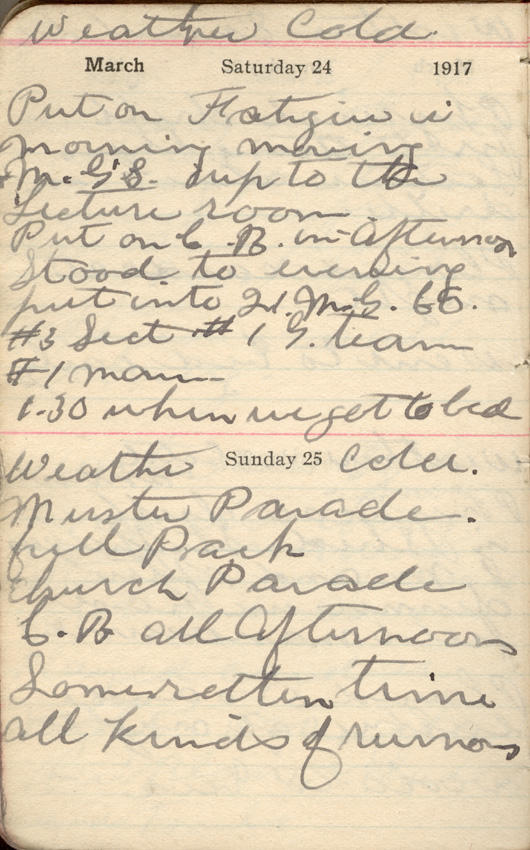 Weather Cold.
March Saturday 24 1917
Put on Fatigue in
morning moving
M.G's. up to the
Lecture room
Put on C.B. in Afternoon
Stood to evening
put into 21. M.G. Co.
#3 Sect #1 G. team
#1 man
1-30 when we get to bed
Weather Sunday 25 Colder.
Muster Parade.
full Pack
Church Parade
C.B all Afternoon
time
all kinds of rumors